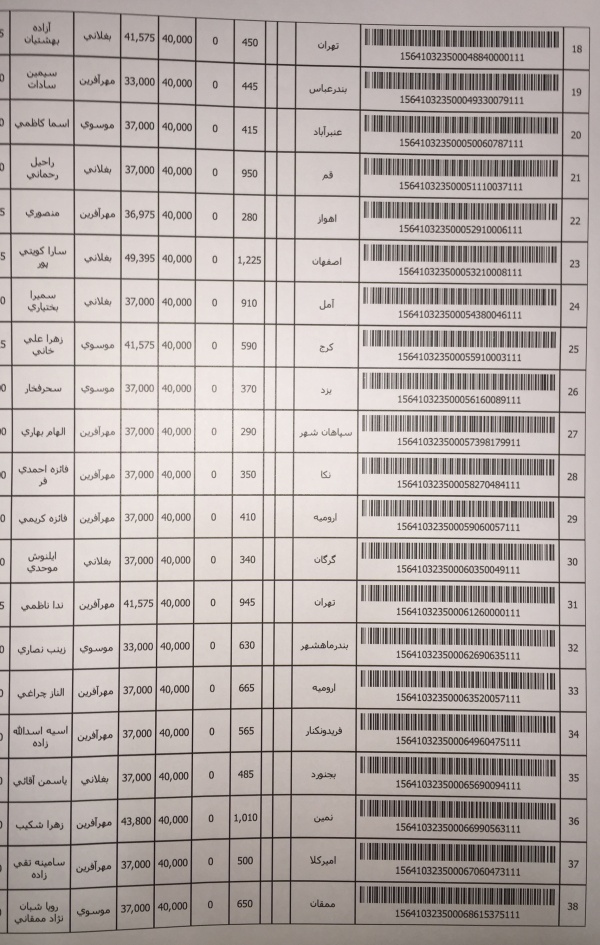 18 156410323500048840000111 تهران 450 0 40,000 41,575 بغلاني آزاده بهشتیان
19 156410323500049330079111 بندرعباس 445 0 40,000 33,000 مهرآفرین سیمین سادات
20 156410323500050060787111 عنبرآباد 415 0 40,000 37,000 موسوي اسما کاظمي
21 156410323500051110037111 قم 950 0 40,000 37,000 بغلاني راحیل رحماني
22 156410323500052910006111 اهواز 280 0 40,000 36,975 مهرآفرین منصوري
23 156410323500053210008111 اصفهان 1,225 0 40,000 49,395 بغلاني سارا کویتي پور
24 156410323500054380046111 آمل 910 0 40,000 37,000 بغلاني سمیرا بختیاري
25 156410323500055910003111 کرج 590 0 40,000 41,575 موسوي زهرا علي خاني
26 156410323500056160089111 یزد 370 0 40,000 37,000 موسوي سحرفخار
27 156410323500057398179911 سپاهان شهر 290 0 40,000 37,000 مهرآفرین الهام بهاري
28 156410323500058270484111 نکا 350 0 40,000 37,000 مهرآفرین فائزه احمدي فر
29 156410323500059060057111 ارومیه 410 0 40,000 37,000 مهرآفرین فائزه کریمي
30 156410323500060350049111 گرگان 340 0 40,000 37,000 بغلاني ایلنوش موحدي
31 156410323500061260000111 تهران 945 0 40,000 41,575 مهرآفرین ندا ناظمي
32 156410323500062690635111 بندرماهشهر 630 0 40,000 33,000 موسوي زینب نصاري
33 156410323500063520057111 ارومیه 665 0 40,000 37,000 مهرآفرین الناز چراغي
34 156410323500064960475111 فریدونکنار 565 0 40,000 37,000 مهرآفرین اسیه اسدالله زاده
35 156410323500065690094111 بجنورد 485 0 40,000 37,000 بغلاني یاسمن آقائي
36 156410323500066990563111 نمین 1,010 0 40,000 43,800 مهرآفرین زهرا شکیب
37 156410323500067060473111 امیرکلا 500 0 40,000 37,000 مهرآفرین سامینه تقي زاده
38 156410323500068615375111 ممقان 650 0 40,000 37,000 موسوي رویا شبان نژاد ممقاني